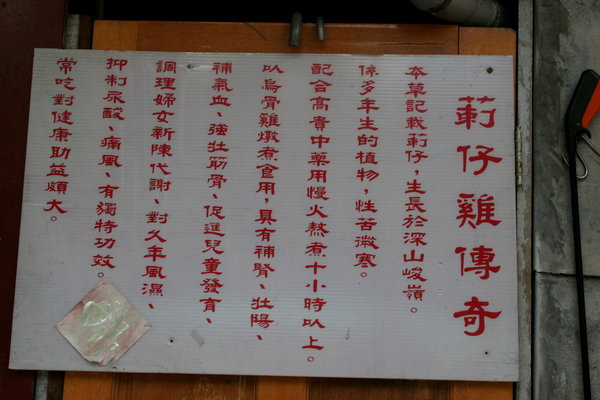 莿仔雞傳奇
本草記載莿仔，生長於深山峻嶺。
係多年生的植物，性苦微寒。
配合高貴中藥用慢火熬煮十小時以上。
以烏骨雞燉煮食用，具有補腎、壯陽、
補氣血、強壯筋骨、促進兒童發育、
調理婦女新陳代謝、對久年風濕、
抑制尿酸、痛風、有獨特功效。
常吃對健康助益頗大。